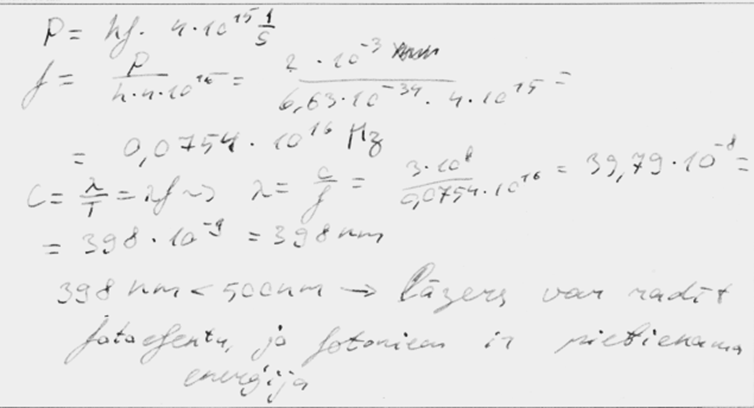 P = hf · 4·10^15 1/s
f = P / (h·4·10^15) = (2·10^-3) / (6,63·10^-34 · 4·10^15) =
= 0,0754 · 10^16 Hz
C = λ/T = λf → λ = c/f = (3·10^8) / (0,0754·10^16) = 39,79·10^-8 =
= 398 · 10^-9 = 398 nm
398 nm < 500nm → lāzers var radīt
fotoefektu, jo fotoniem ir pietiekama
enerģija